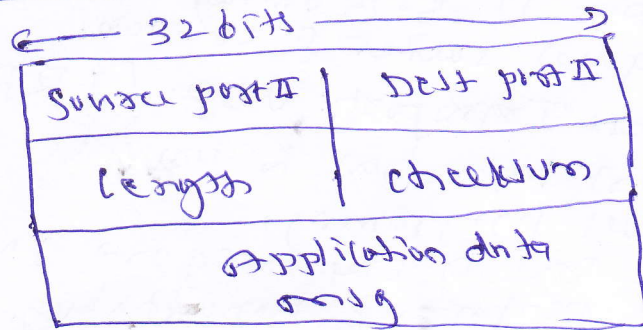 32 bits
Source port # Dest port #
Length checksum
Application data
msg